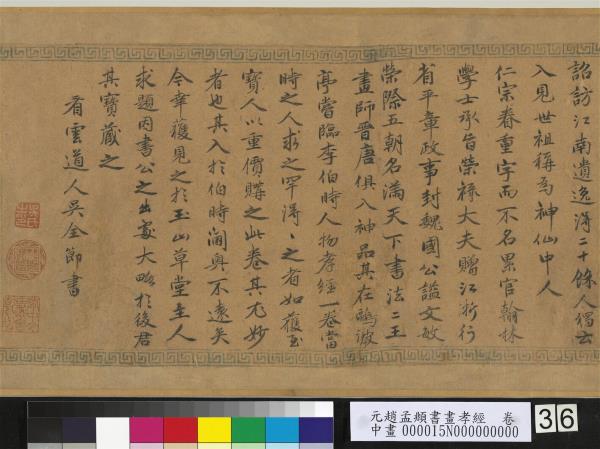 詔訪江南遺逸得二十餘人獨公
入見世祖稱為神仙中人
仁宗眷重字而不名累官翰林
學士承旨榮祿大夫贈江浙行
省平章政事封魏國公謚文敏
榮際五朝名滿天下書法二王
畫師晉唐俱入神品其在鷗波
亭嘗臨李伯時人物孝經一卷當
時之人求之罕得得之者如獲至
寶人以重價購之此卷其尤妙
者也其入於伯時閫奧不遠矣
今幸獲見之於玉山草堂主人
求題因書公之出處大略於後君
其寶藏之
看雲道人吳全節書
元趙孟頫書畫孝經 卷
中畫 000015N000000000
36